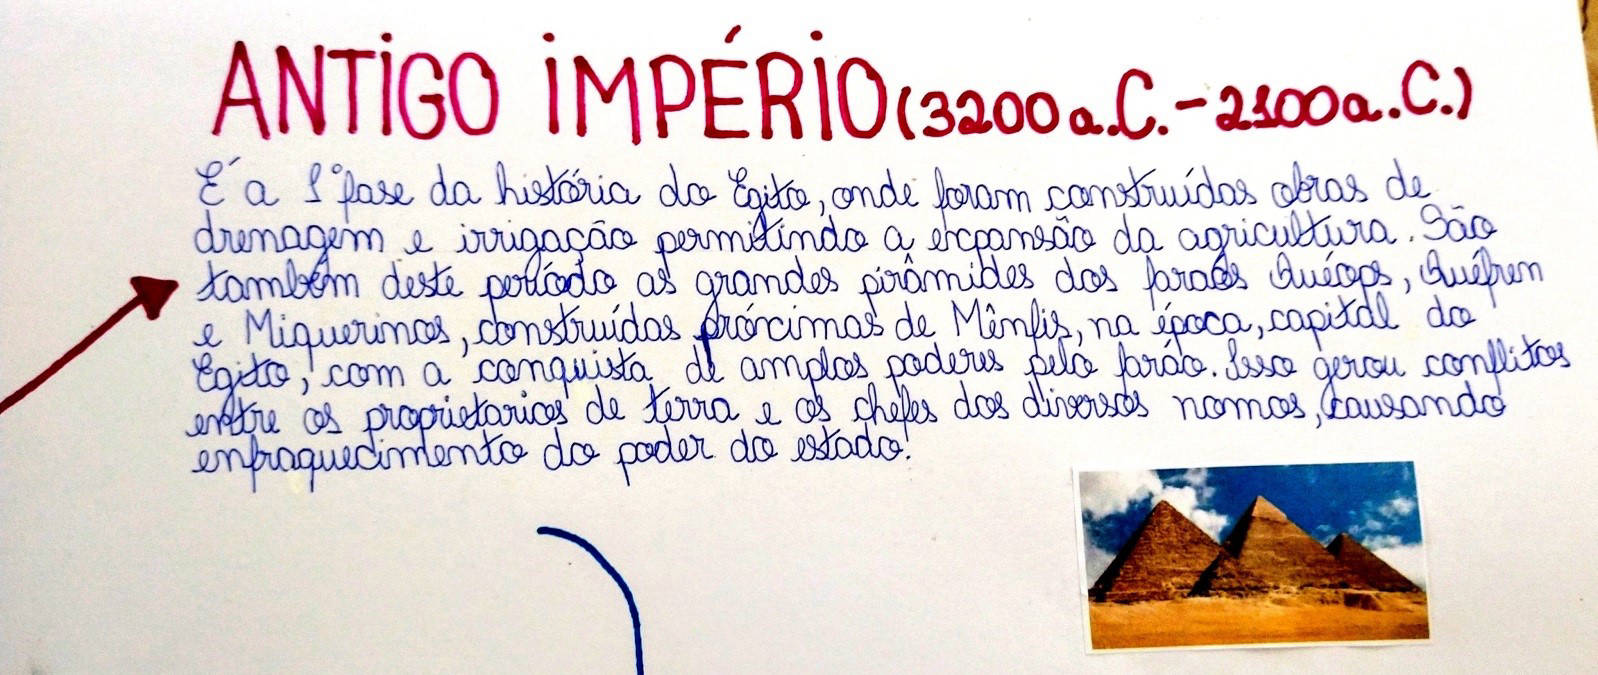 ANTIGO IMPÉRIO (3200 a.C. - 2100 a.C.)
É a 1° fase da história do Egito, onde foram construídas obras de
drenagem e irrigação permitindo a expansão da agricultura. São
também deste período as grandes pirâmides dos faraós Quéops, Quéfren
e Miquerinos, construídas próximas de Mênfis, na época, capital do
Egito, com a conquista de amplos poderes pelo faráo. Isso gerou conflitos
entre os proprietarios de terra e os chefes dos diversos nomos, causando
enfraquecimento do poder do estado.